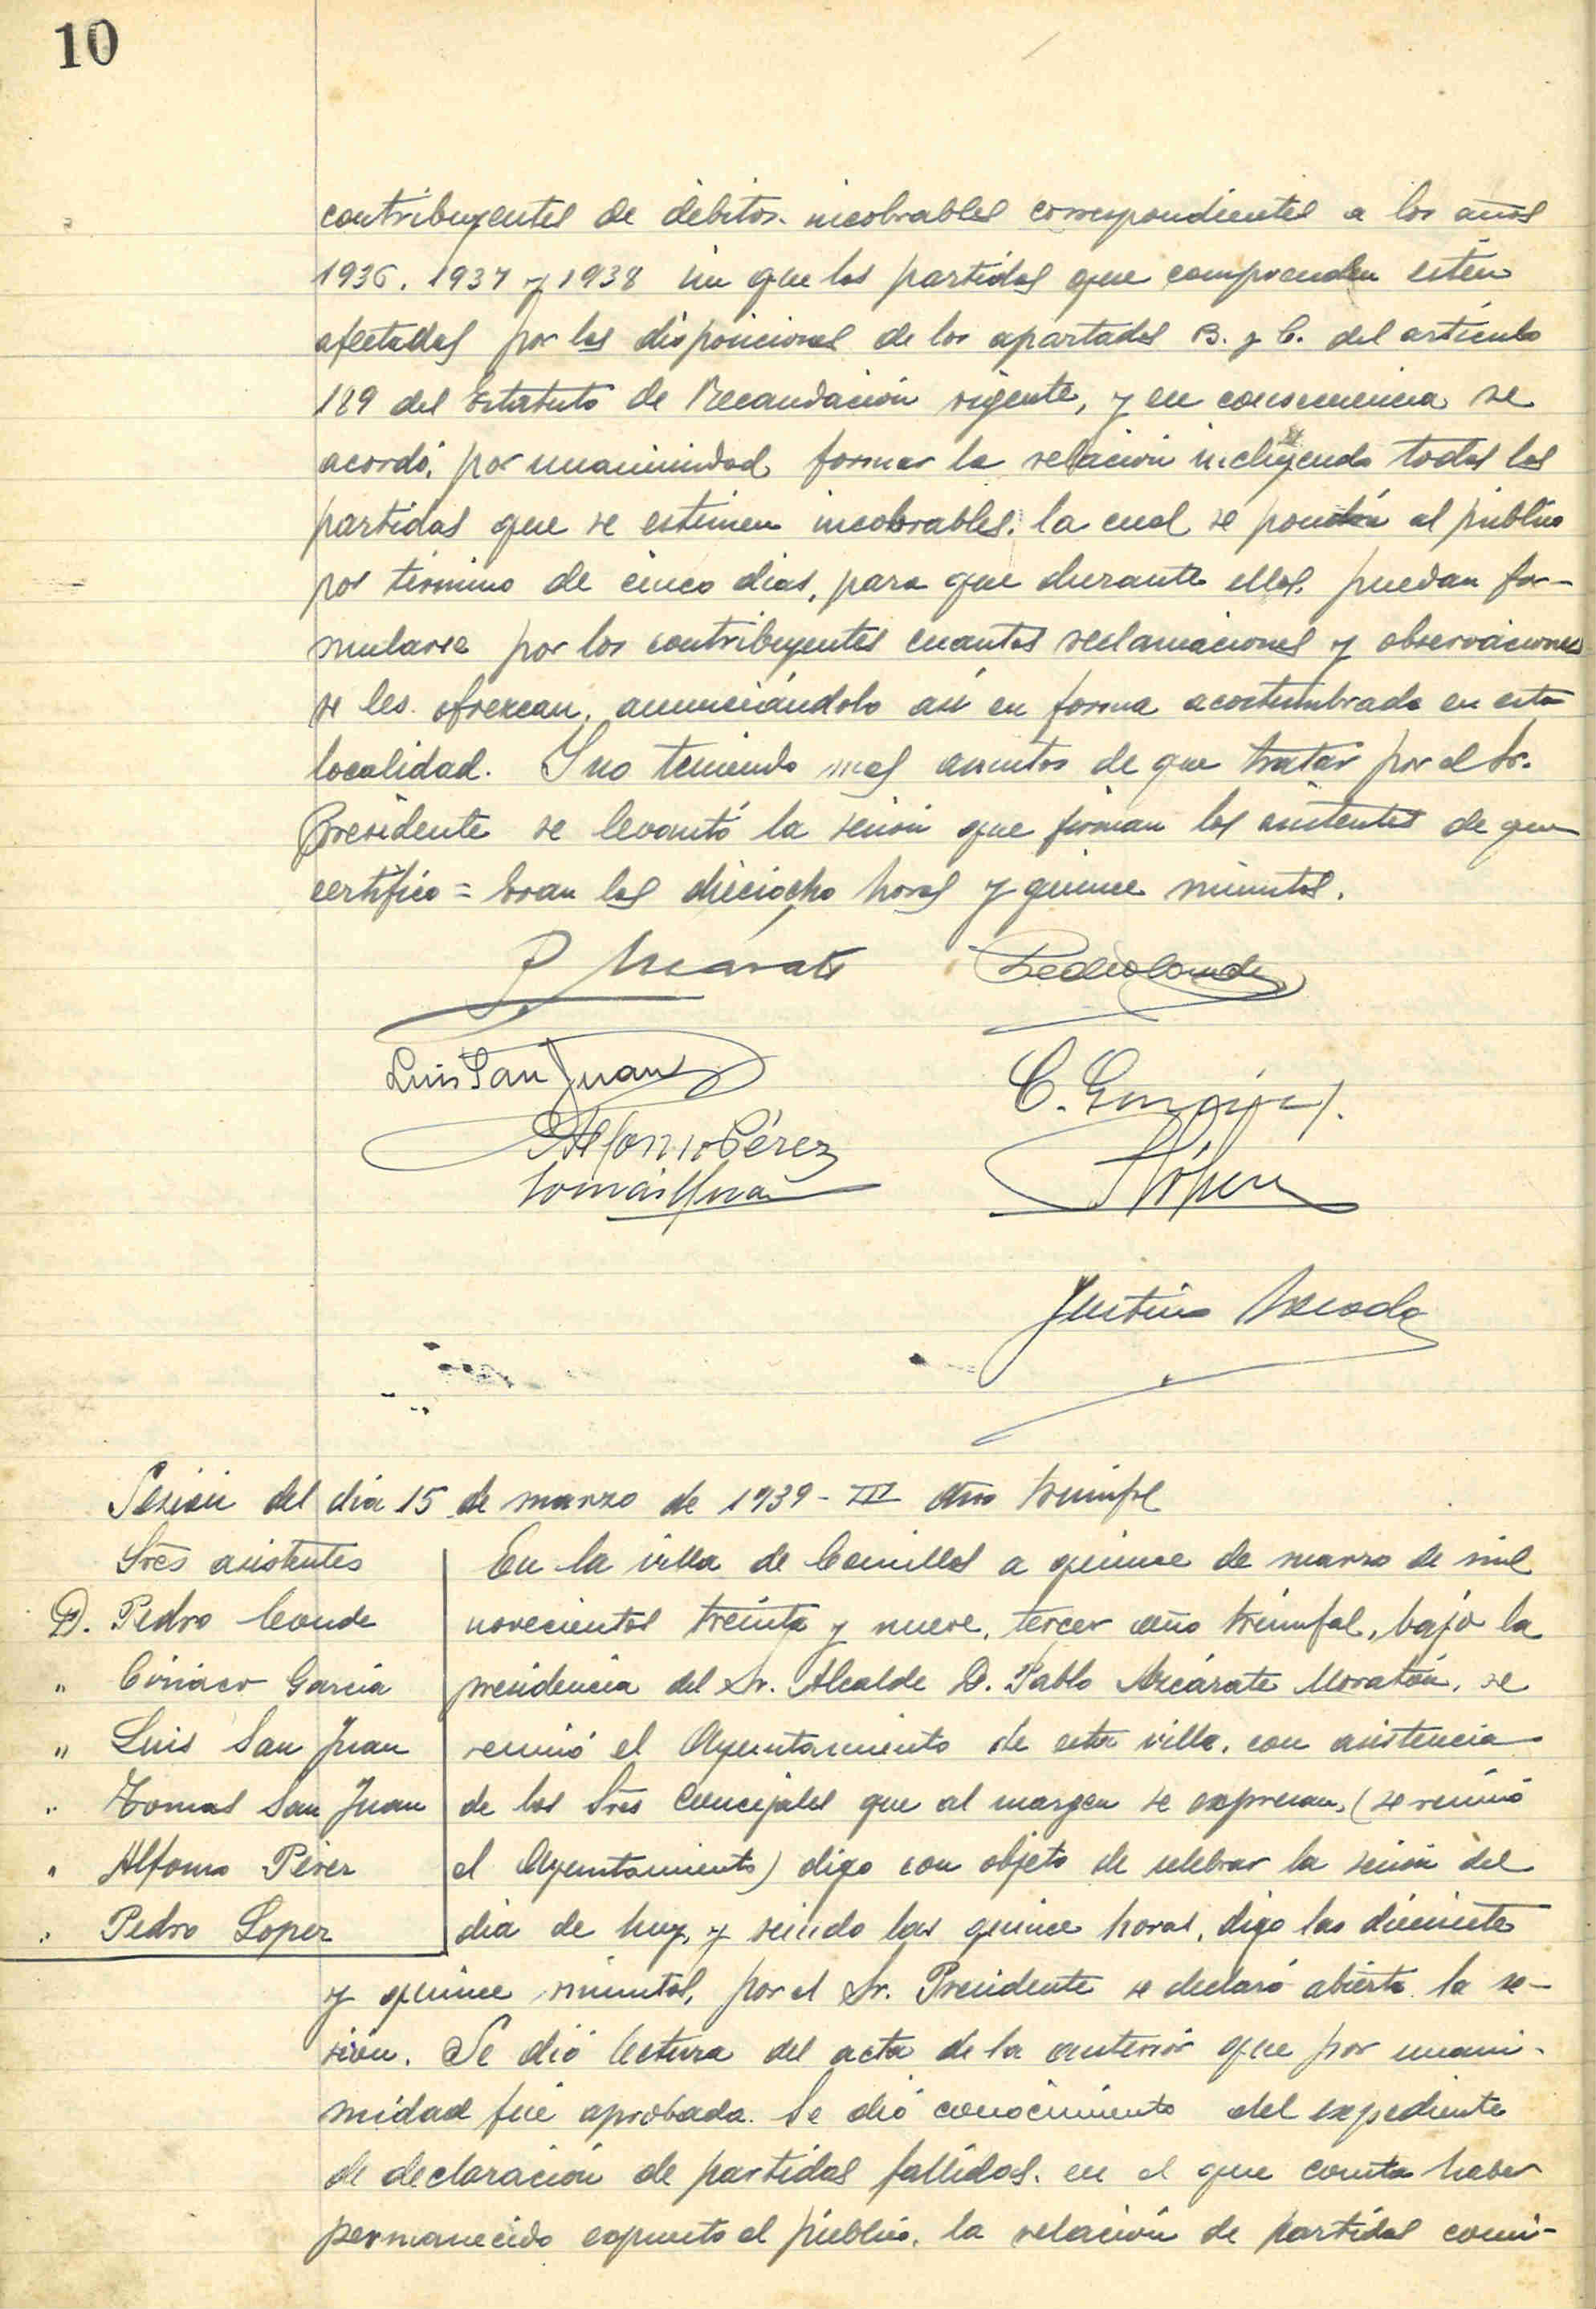 10
contribuyentes de débitos incobrables correspondientes a los años
1936, 1937 y 1938 sin que las partidas que comprenden estén
afectadas por las disposiciones de los apartados B. y C. del artículo
189 del Estatuto de Recaudación vigente, y en consecuencia se
acordó, por unanimidad formar la relación incluyendo todas las
partidas que se estimen incobrables, la cual se pondrá al público
por término de cinco dias, para que durante ellos, puedan for-
mularse por los contribuyentes cuantas reclamaciones y observaciones
se les ofrezcan, anunciándolo asi en forma acostumbrada en esta
localidad. Y no teniendo mas asuntos de que tratar por el Sr.
Presidente se levantó la sesión que firman los asistentes de que
certifico = Eran las dieciocho horas y quince minutos.
P. Azcárate Pedro Conde
Luis San Juan
Alfonso Pérez
Justino
Sesión del dia 15 de marzo de 1939 - III año triunfal
Sres asistentes
D. Pedro Conde
" Ciriaco Garcia
" Luis San Juan
" Tomas San Juan
" Alfonso Pérez
" Pedro Lopez
En la villa de Comillas a quince de marzo de mil
novecientos treinta y nueve, tercer año triunfal, bajo la
presidencia del Sr. Alcalde D. Pablo Azcárate Moratón, se
reunió el Ayuntamiento de esta villa, con asistencia
de los Sres Concejales que al margen se expresan, (se reunió
el Ayuntamiento) digo con objeto de celebrar la sesión del
dia de hoy, y siendo las quince horas, digo las diecisiete
y quince minutos, por el Sr. Presidente se declaró abierta la se-
sión. Se dió lectura del acta de la anterior que por unani-
midad fué aprobada. Se dió conocimiento del expediente
de declaración de partidas fallidas, en el que consta haber
permanecido expuesto al público, la relación de partidas consi-